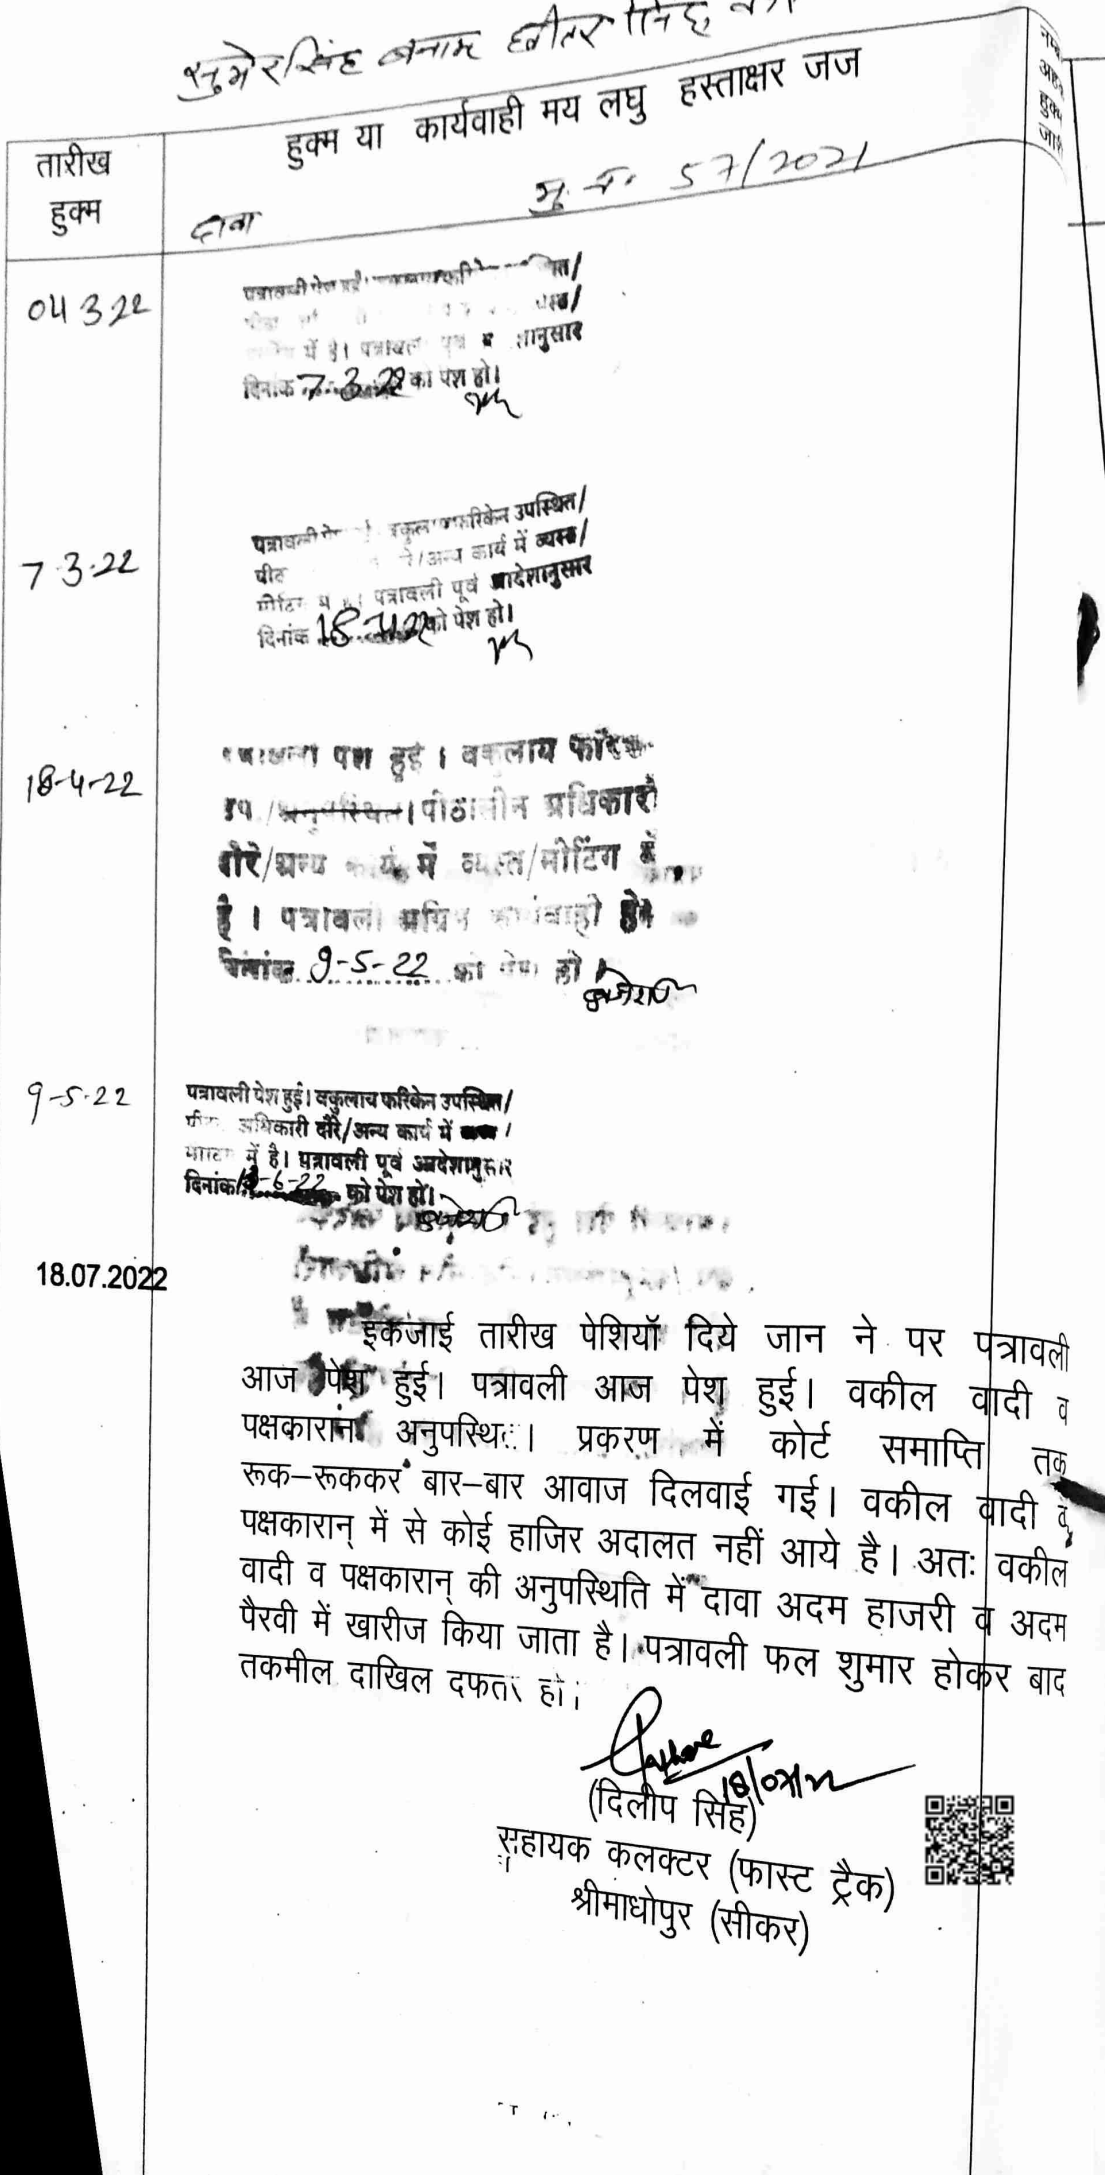 सुमेरसिंह बनाम छीतर सिंह
हुक्म या कार्यवाही मय लघु हस्ताक्षर जज
तारीख
हुक्म
दावा
मु. न. 57/2021
04 3.22
पत्रावली पेश हुई।
में है। पत्रावली
दिनांक 7-3-22 को पेश हो।
7.3.22
पत्रावली फरिकेन उपस्थित/
/अन्य कार्य में व्यस्त/
पत्रावली पूर्व आदेशानुसार
दिनांक 18-4-22 को पेश हो।
18-4-22
पेश हुई । वकुलाय
/अनुपस्थित। पीठासीन अधिकारी
दौरे/अन्य कार्य में व्यस्त/मीटिंग में
है । पत्रावली अग्रिम कार्यवाही हेतु
दिनांक 9-5-22 को पेश हो
9-5-22
पत्रावली पेश हुई। वकुलाय फरिकेन उपस्थित/
अधिकारी दौरे/अन्य कार्य में
में है। पत्रावली पूर्व आदेशानुसार
दिनांक -6-22 को पेश हो।
18.07.2022
इकजाई तारीख पेशियॉ दिये जान ने पर पत्रावली
आज पेश हुई। पत्रावली आज पेश हुई। वकील वादी व
पक्षकारान अनुपस्थित। प्रकरण में कोर्ट समाप्ति तक
रूक–रूककर बार–बार आवाज दिलवाई गई। वकील वादी व
पक्षकारान् में से कोई हाजिर अदालत नहीं आये है। अतः वकील
वादी व पक्षकारान् की अनुपस्थिति में दावा अदम हाजरी व अदम
पैरवी में खारीज किया जाता है। पत्रावली फल शुमार होकर बाद
तकमील दाखिल दफतर हो।
18/07/22
(दिलीप सिंह)
सहायक कलक्टर (फास्ट ट्रैक)
श्रीमाधोपुर (सीकर)